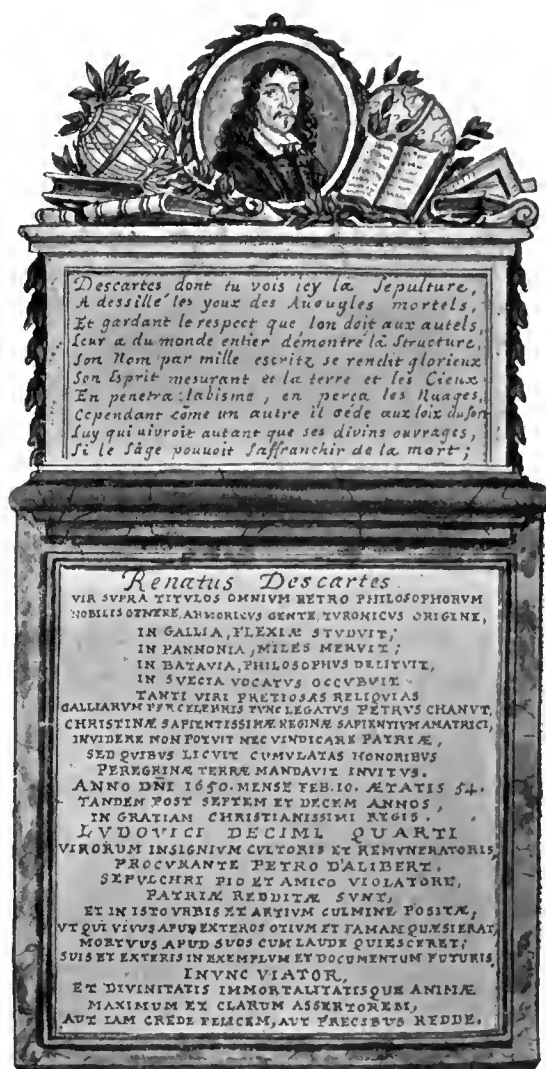 Descartes dont tu vois icy la Sepulture,
A dessillé les yeux des Aueugles mortels,
Et gardant le respect que lon doit aux autels,
Leur a du monde entier démontré la Structure.
Son Nom par mille escritz se rendit glorieux
Son Esprit mesurant et la terre et les Cieux
En penetra labisme, en perça les Nuages,
Cependant cõme un autre il cède aux loix du sort
Luy qui uivroit autant que ses divins ouvrages,
Si le Sâge pouuoit Saffranchir de la mort;
Renatus Descartes
VIR SVPRA TITVLOS OMNIVM RETRO PHILOSOPHORVM
NOBILIS GENERE, ARMORICVS GENTE, TVRONICVS ORIGINE,
IN GALLIA, FLEXIÆ STVDVIT;
IN PANNONIA, MILES MERVIT;
IN BATAVIA, PHILOSOPHVS DELITVIT,
IN SVECIA VOCATVS OCCVBVIT
TANTI VIRI PRETIOSAS RELIQVIAS
GALLIARVM PERCELEBRIS TVNC LEGATVS PETRVS CHANVT,
CHRISTINÆ SAPIENTISSIMÆ REGINÆ SAPIENTIVM AMATRICI,
INVIDERE NON POTVIT NEC VINDICARE PATRIÆ,
SED QVIBVS LICVIT CVMVLATAS HONORIBVS
PEREGRINÆ TERRÆ MANDAVIT INVITVS.
ANNO DÑI 1650. MENSE FEB. 10. ÆTATIS 54.
TANDEM POST SEPTEM ET DECEM ANNOS,
IN GRATIAM CHRISTIANISSIMI REGIS.
LVDOVICI DECIMI QUARTI
VIRORUM INSIGNIVM CVLTORIS ET REMVNERATORIS,
PROCVRANTE PETRO D'ALIBERT,
SEPVLCHRI PIO ET AMICO VIOLATORE,
PATRIÆ REDDITÆ SVNT,
ET IN ISTO VRBIS ET ARTIVM CULMINE POSITÆ,
VT QVI VIVVS APVD EXTEROS OTIVM ET FAMAM QVÆSIERAT,
MORTVVS APVD SUOS CVM LAUDE QVIESCERET;
SVIS ET EXTERIS IN EXEMPLVM ET DOCVMENTVM FVTVRIS.
I NVNC VIATOR,
ET DIVINITATIS IMMORTALITATISQVE ANIMÆ
MAXIMVM ET CLARVM ASSERTOREM,
AVT IAM CREDE FELICEM, AVT PRECIBVS REDDE.